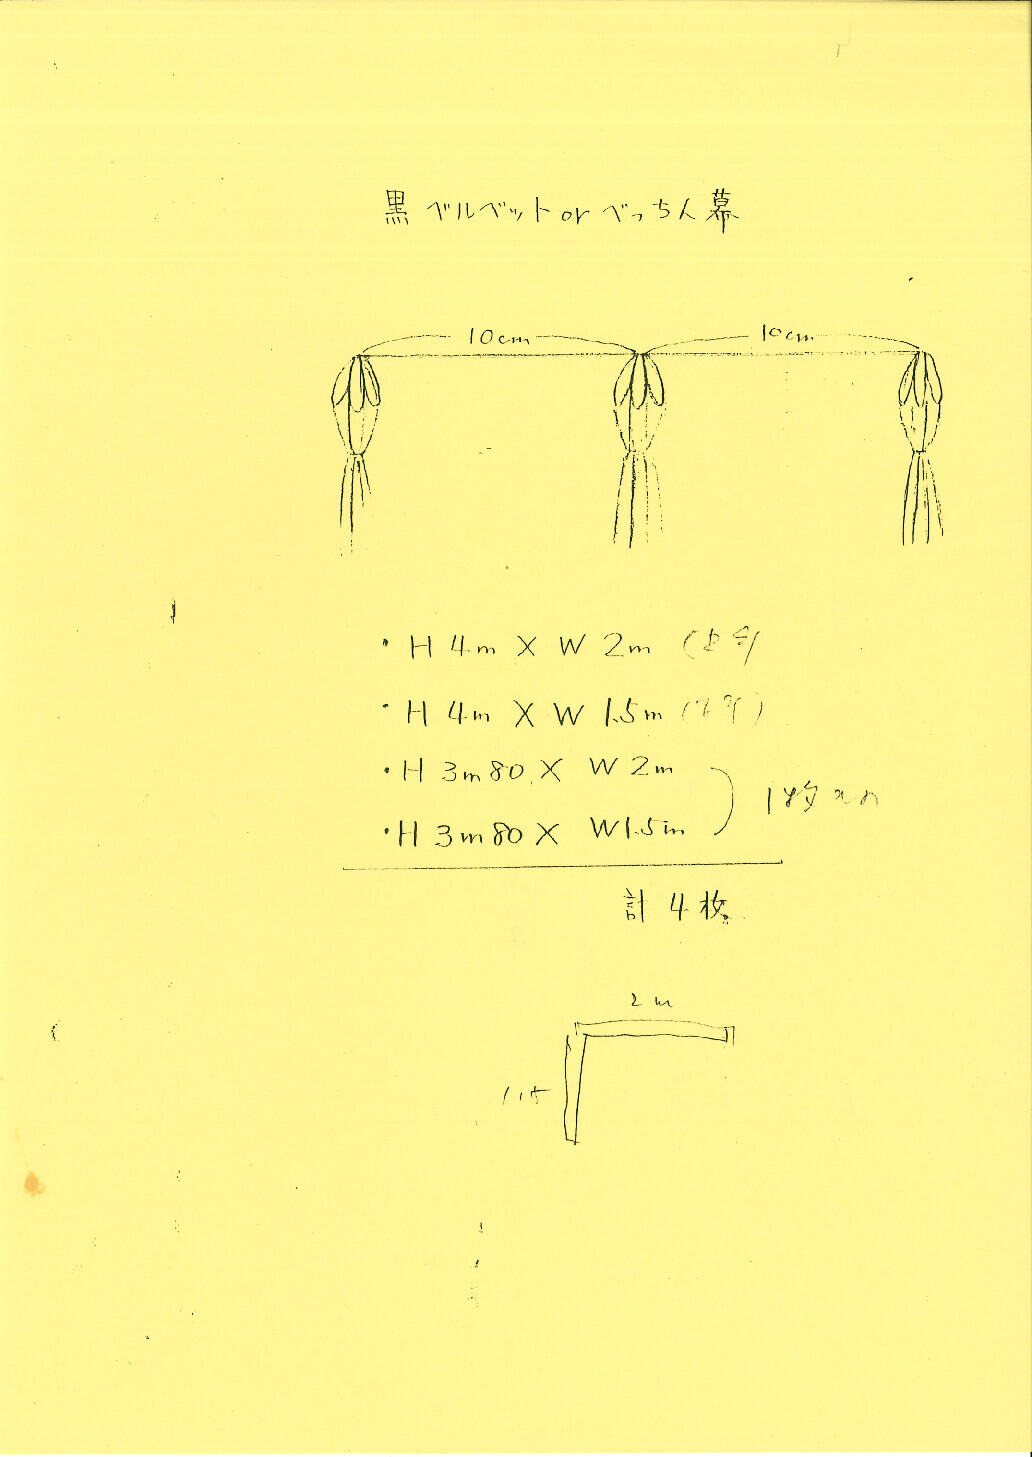 黒 ベルベット or べっちん 幕
10cm 10cm
・H 4m X W 2m
・H 4m X W 1.5m
・H 3m80 X W 2m
・H 3m80 X W1.5m
計 4 枚
2 m
1.5